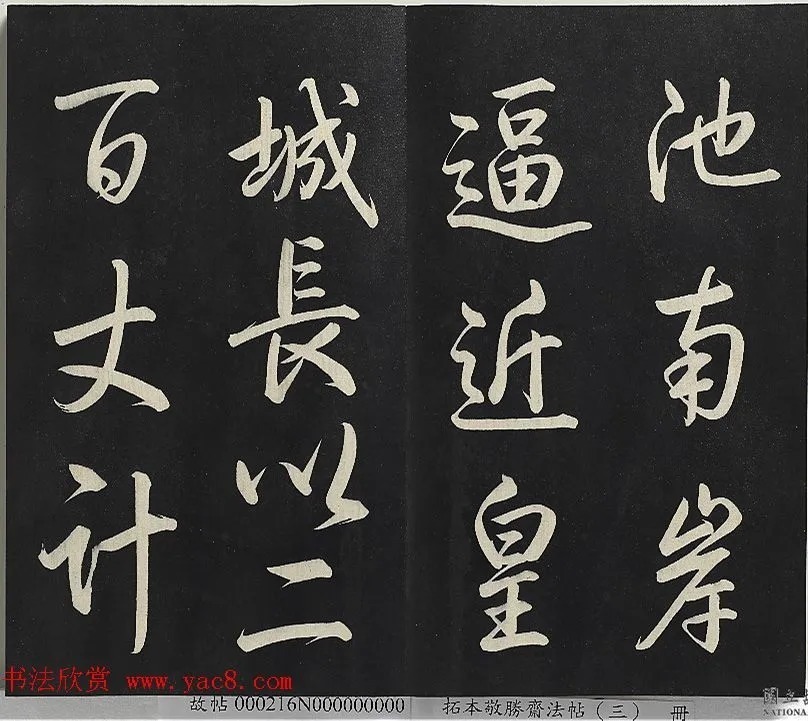 池南岸
逼近皇
城長以二
百丈計
书法欣赏 www.yac8.com
故帖 000216N000000000 拓本敬勝齋法帖(三) 冊
國立
NATIONA